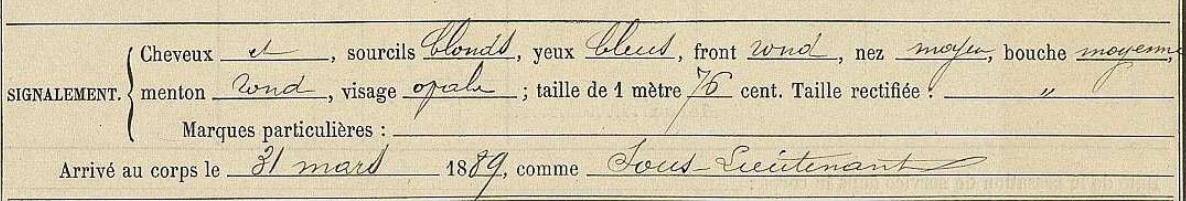 Cheveux et, sourcils blonds, yeux bleus, front rond, nez moyen, bouche moyenne,
SIGNALEMENT. menton rond, visage opale; taille de 1 mètre 76 cent. Taille rectifiée : "
Marques particulières :
Arrivé au corps le 31 mars 1889, comme Sous-Lieutenant